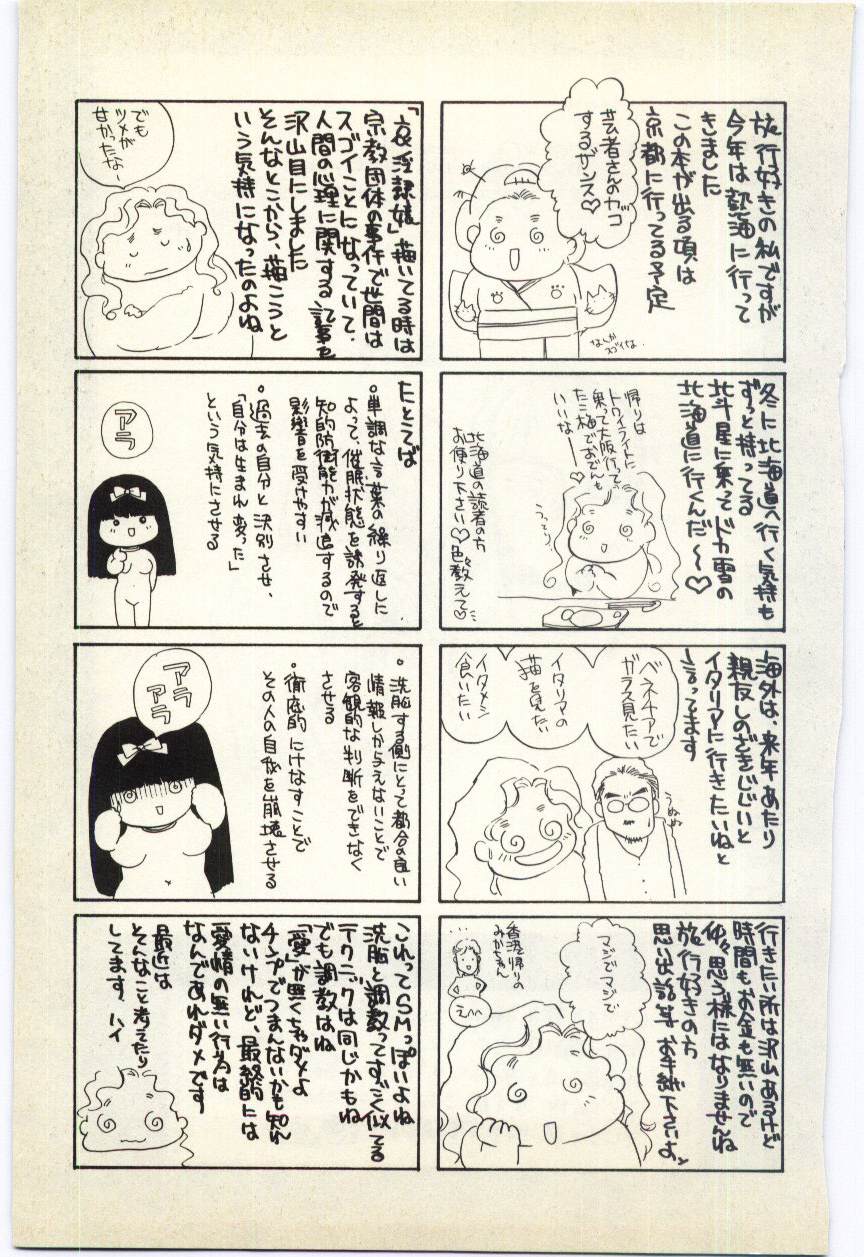 旅行好きの私ですが
今年は熱海に行って
きました
この本が出る頃は
京都に行ってる予定
芸者さんのカッコ
するザンス♡
なんか
スゴイな
冬に北海道へ行く気持も
ずっと持ってる
北斗星に乗ってドカ雪の
北海道に行くんだ〜♡
帰りは
トワイライトに
乗って大阪行って
たこ梅でおでんも
いいな――♡
うっとり
北海道の読者の方
お便り下さい♡色々教えて♡
海外は、来年あたり
親友しのざきじじいと
イタリアに行きたいねと
言ってます
ベネチアで
ガラス見たい
イタリアの
猫を見たい
イタメシ
食いたい
うぬぬ
行きたい所は沢山あるけど
時間もお金も無いので
仲々思う様にはなりませんね
旅行好きの方
思い出話等お手紙下さいよ
マジでマジで
香港帰りの
みかちゃん
えへへ
「哀淫隷嬢」描いてる時は
宗教団体の事件で世間は
スゴイことになっていて、
人間の心理に関する記事を
沢山目にしました
そんなとこから、描こうと
いう気持になったのよね
でも
ツメが
甘かったな〜
たとえば
・単調な言葉の繰り返しに
よって、催眠状態を誘発すると
知的防衛能力が減退するので
影響を受けやすい
・過去の自分と決別させ、
「自分は生まれ変った」
という気持にさせる
アラ
・洗脳する側にとって都合の良い
情報しか与えないことで
客観的な判断をできなく
させる
・徹底的にけなすことで
その人の自我を崩壊させる
アラ
アラ
これってSMっぽいよね
洗脳と調教ってすごく似てる
テクニックは同じかもね
でも調教はね
「愛」が無くちゃダメよ
チンプでつまんないかも知れ
ないけれど、最終的には
愛情の無い行為は
なんであれダメです
最近は
そんなこと考えたり
してます、ハイ